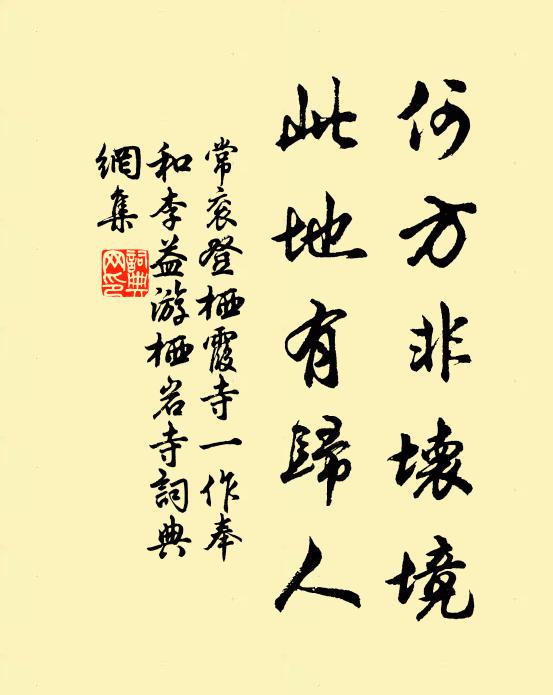 何方非壞境
此地有歸人
常袞登栖霞寺一作奉
和李益游栖岩寺詞典
網集
詞典網印